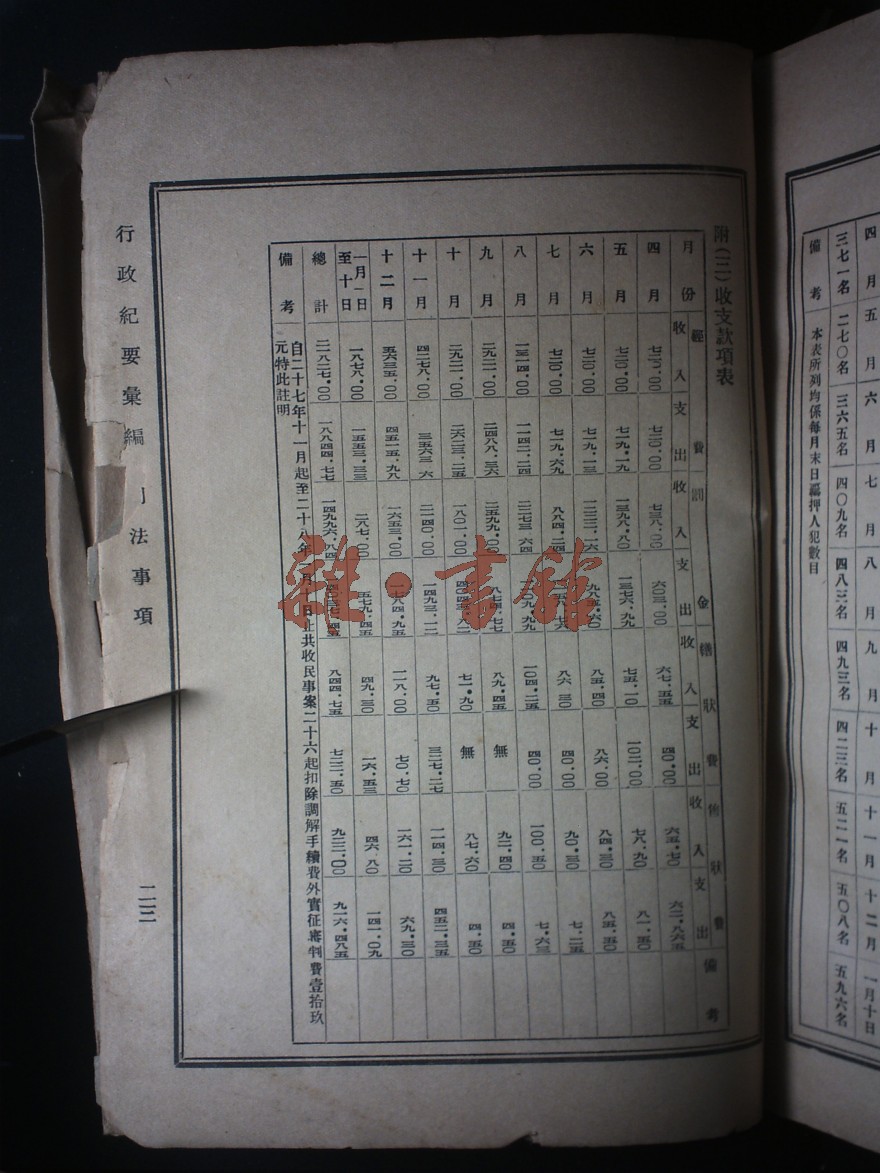 四月 五月 六月 七月 八月 九月 十月 十一月 十二月 一月十日
三七一名 二七〇名 三六五名 四〇九名 四八三名 四九三名 四二三名 五二一名 五〇八名 五九六名
備考 本表所列均係每月末日羈押人犯數目
附(三)收支款項表
月份 經費 罰金 繕狀費 狀費 備考
收入 支出 收入 支出 收入 支出 收入 支出
四月 七二〇.〇〇 七二〇.〇〇 七三八.〇〇 六〇三.〇〇 六七.五五 四〇.〇〇 六五.七〇 六二.八六五
五月 七二〇.〇〇 七一九.一九 一三九八.八〇 一三七六.九九 七五.一〇 一〇二.〇〇 七八.九〇 八一.五〇
六月 七二〇.〇〇 七一九.一三 八五.四〇 八六.〇〇 八四.三〇 八五.五〇
七月 七二〇.〇〇 七一九.六九 八八四.二四 八六.三〇 四〇.〇〇 九〇.三〇 七.二五
八月 一三一四.〇〇 一一四二.二四 二二七三.六四 一〇四.二五 四〇.〇〇 一〇〇.五〇 七.六三
九月 二九二一.〇〇 二四八八.三六 二五九九.〇〇 八九.四五 無 九二.四〇 四.五〇
十月 二九二一.〇〇 二六二三.二五 一八〇一.〇〇 七一.九〇 無 八七.六〇 四.五〇
十一月 四二七八.〇〇 三五六三.六 二一四〇.〇〇 一四九三.一二 九七.五〇 三二七.二七 一一四.三〇 四五二.三五
十二月 五六三五.〇〇 四五一五.九八 一六五三.〇〇 一七八四.九五 一一八.〇〇 七〇.七〇 一六一.二〇 六九.三〇
一月一日至十日 一八七八.〇〇 一五五三.三三 二八七.〇〇 五七九.四五 四九.三〇 一六.五三 四六.八〇 一四一.〇九
總計 二一八二七.〇〇 一八八四四.七七 一四九九六.八四 八四四.七五 七二二.五〇 九二二.〇〇 九一六.四八五
備考 自二十七年十一月起至二十八年一月十日止共收民事案二十六起扣除調解手續費外實征審判費壹拾玖
元特此註明
行政紀要彙編 法事項
二三
雜·書館